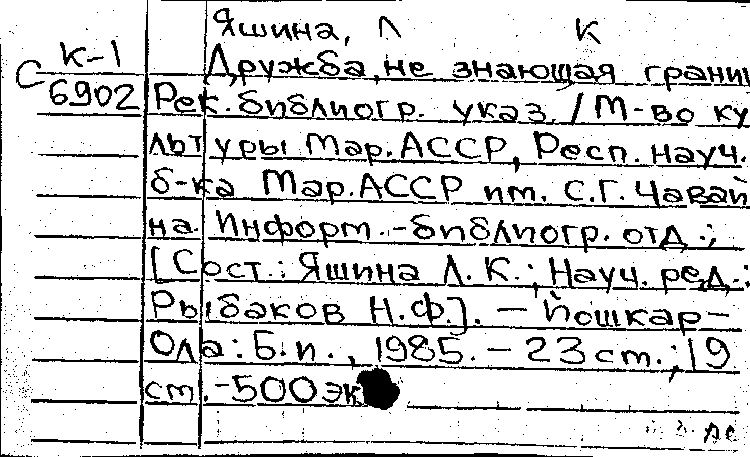 Яшина, Л К
К-1
С Дружба, не знающая грани
6902 Рек. библиогр. указ. / М-во ку
льтуры Мар. АССР, Респ. науч.
б-ка Мар. АССР им. С.Г. Чавай
на Информ.-библиогр. отд.;
[Сост.: Яшина Л. К.; Науч. ред.:
Рыбаков Н.Ф.]. - Йошкар-
Ола: Б.и., 1985. - 23 ст.; 19
ст. - 500 эк